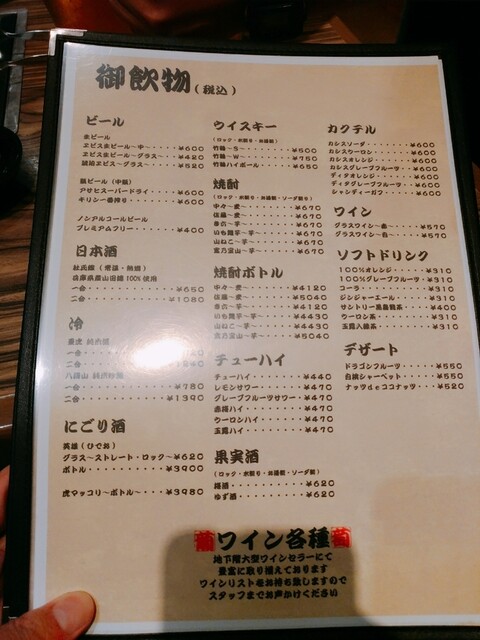 御飲物(税込)
ビール
生ビール
ヱビス生ビール〜中〜・・・¥600
ヱビス生ビール〜グラス〜・・・¥420
琥珀ヱビス〜グラス〜・・・¥520
瓶ビール(中瓶)
アサヒスーパードライ・・・¥600
キリン一番搾り・・・¥600
ノンアルコールビール
プレミアムフリー・・・¥400
日本酒
兵庫県産山田錦100%使用
一合・・・¥650
二合・・・¥1080
冷
一合
二合
八海山
一合・・・¥780
二合・・・¥1390
にごり酒
英雄(ひでお)
グラス〜ストレート・ロック〜¥620
ボトル・・・¥3900
虎マッコリ〜ボトル〜・・・¥3980
ウイスキー
(ロック・水割り・お湯割・ソーダ割)
竹鶴〜S〜・・・¥500
竹鶴〜W〜・・・¥750
竹鶴ハイボール・・・¥650
焼酎
(ロック・水割り・お湯割・ソーダ割り)
中々〜麦〜・・・¥670
佐藤〜麦〜・・・¥670
〜芋〜・・・¥670
〜芋〜・・・¥670
山ねこ〜芋〜・・・¥670
富乃宝山〜芋〜・・・¥670
焼酎ボトル
中々〜麦〜・・・¥4120
佐藤〜麦〜・・・¥5040
〜芋〜・・・¥4120
〜芋〜・・・¥4430
山ねこ〜芋〜・・・¥4430
富乃宝山〜芋〜・・・¥5040
チューハイ
チューハイ・・・¥440
レモンサワー・・・¥470
グレープフルーツサワー・・¥470
ハイ・・・¥470
ウーロンハイ・・・¥470
玉露ハイ・・・¥470
果実酒
(ロック・水割り・お湯割・ソーダ割)
梅酒・・・¥620
ゆず酒・・・¥620
カクテル
カシスソーダ・・・¥600
カシスウーロン・・・¥600
カシスオレンジ・・・¥600
カシスグレープフルーツ・・・¥600
ディタオレンジ・・・¥600
ディタグレープフルーツ・・・¥600
シャンディーガフ・・・¥600
ワイン
グラスワイン〜赤〜・・・¥570
グラスワイン〜白〜・・・¥570
ソフトドリンク
100%オレンジ・・・¥310
100%グレープフルーツ・・・¥310
コーラ・・・¥310
ジンジャーエール・・・¥310
サントリー黒烏龍茶・・・¥400
ウーロン茶・・・¥310
玉露入緑茶・・・¥310
デザート
ドラゴンフルーツ・・・¥550
白桃シャーベット・・・¥550
ナッツdeココナッツ・・・¥520
ワイン各種
地下階大型ワインセラーにて
豊富に取り揃えております
ワインリストをお持ち致しますので
スタッフまでお声かけください